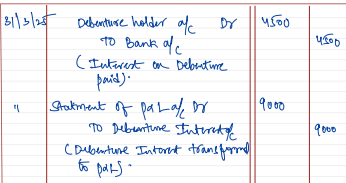 31/3/25 Debenture holder a/c Dr 4500
To Bank a/c 4500
(Interest on Debenture
paid).
" Statment of P&L a/c Dr 9000
To Debenture Interest a/c 9000
(Debenture Interest transformed
to P&L).